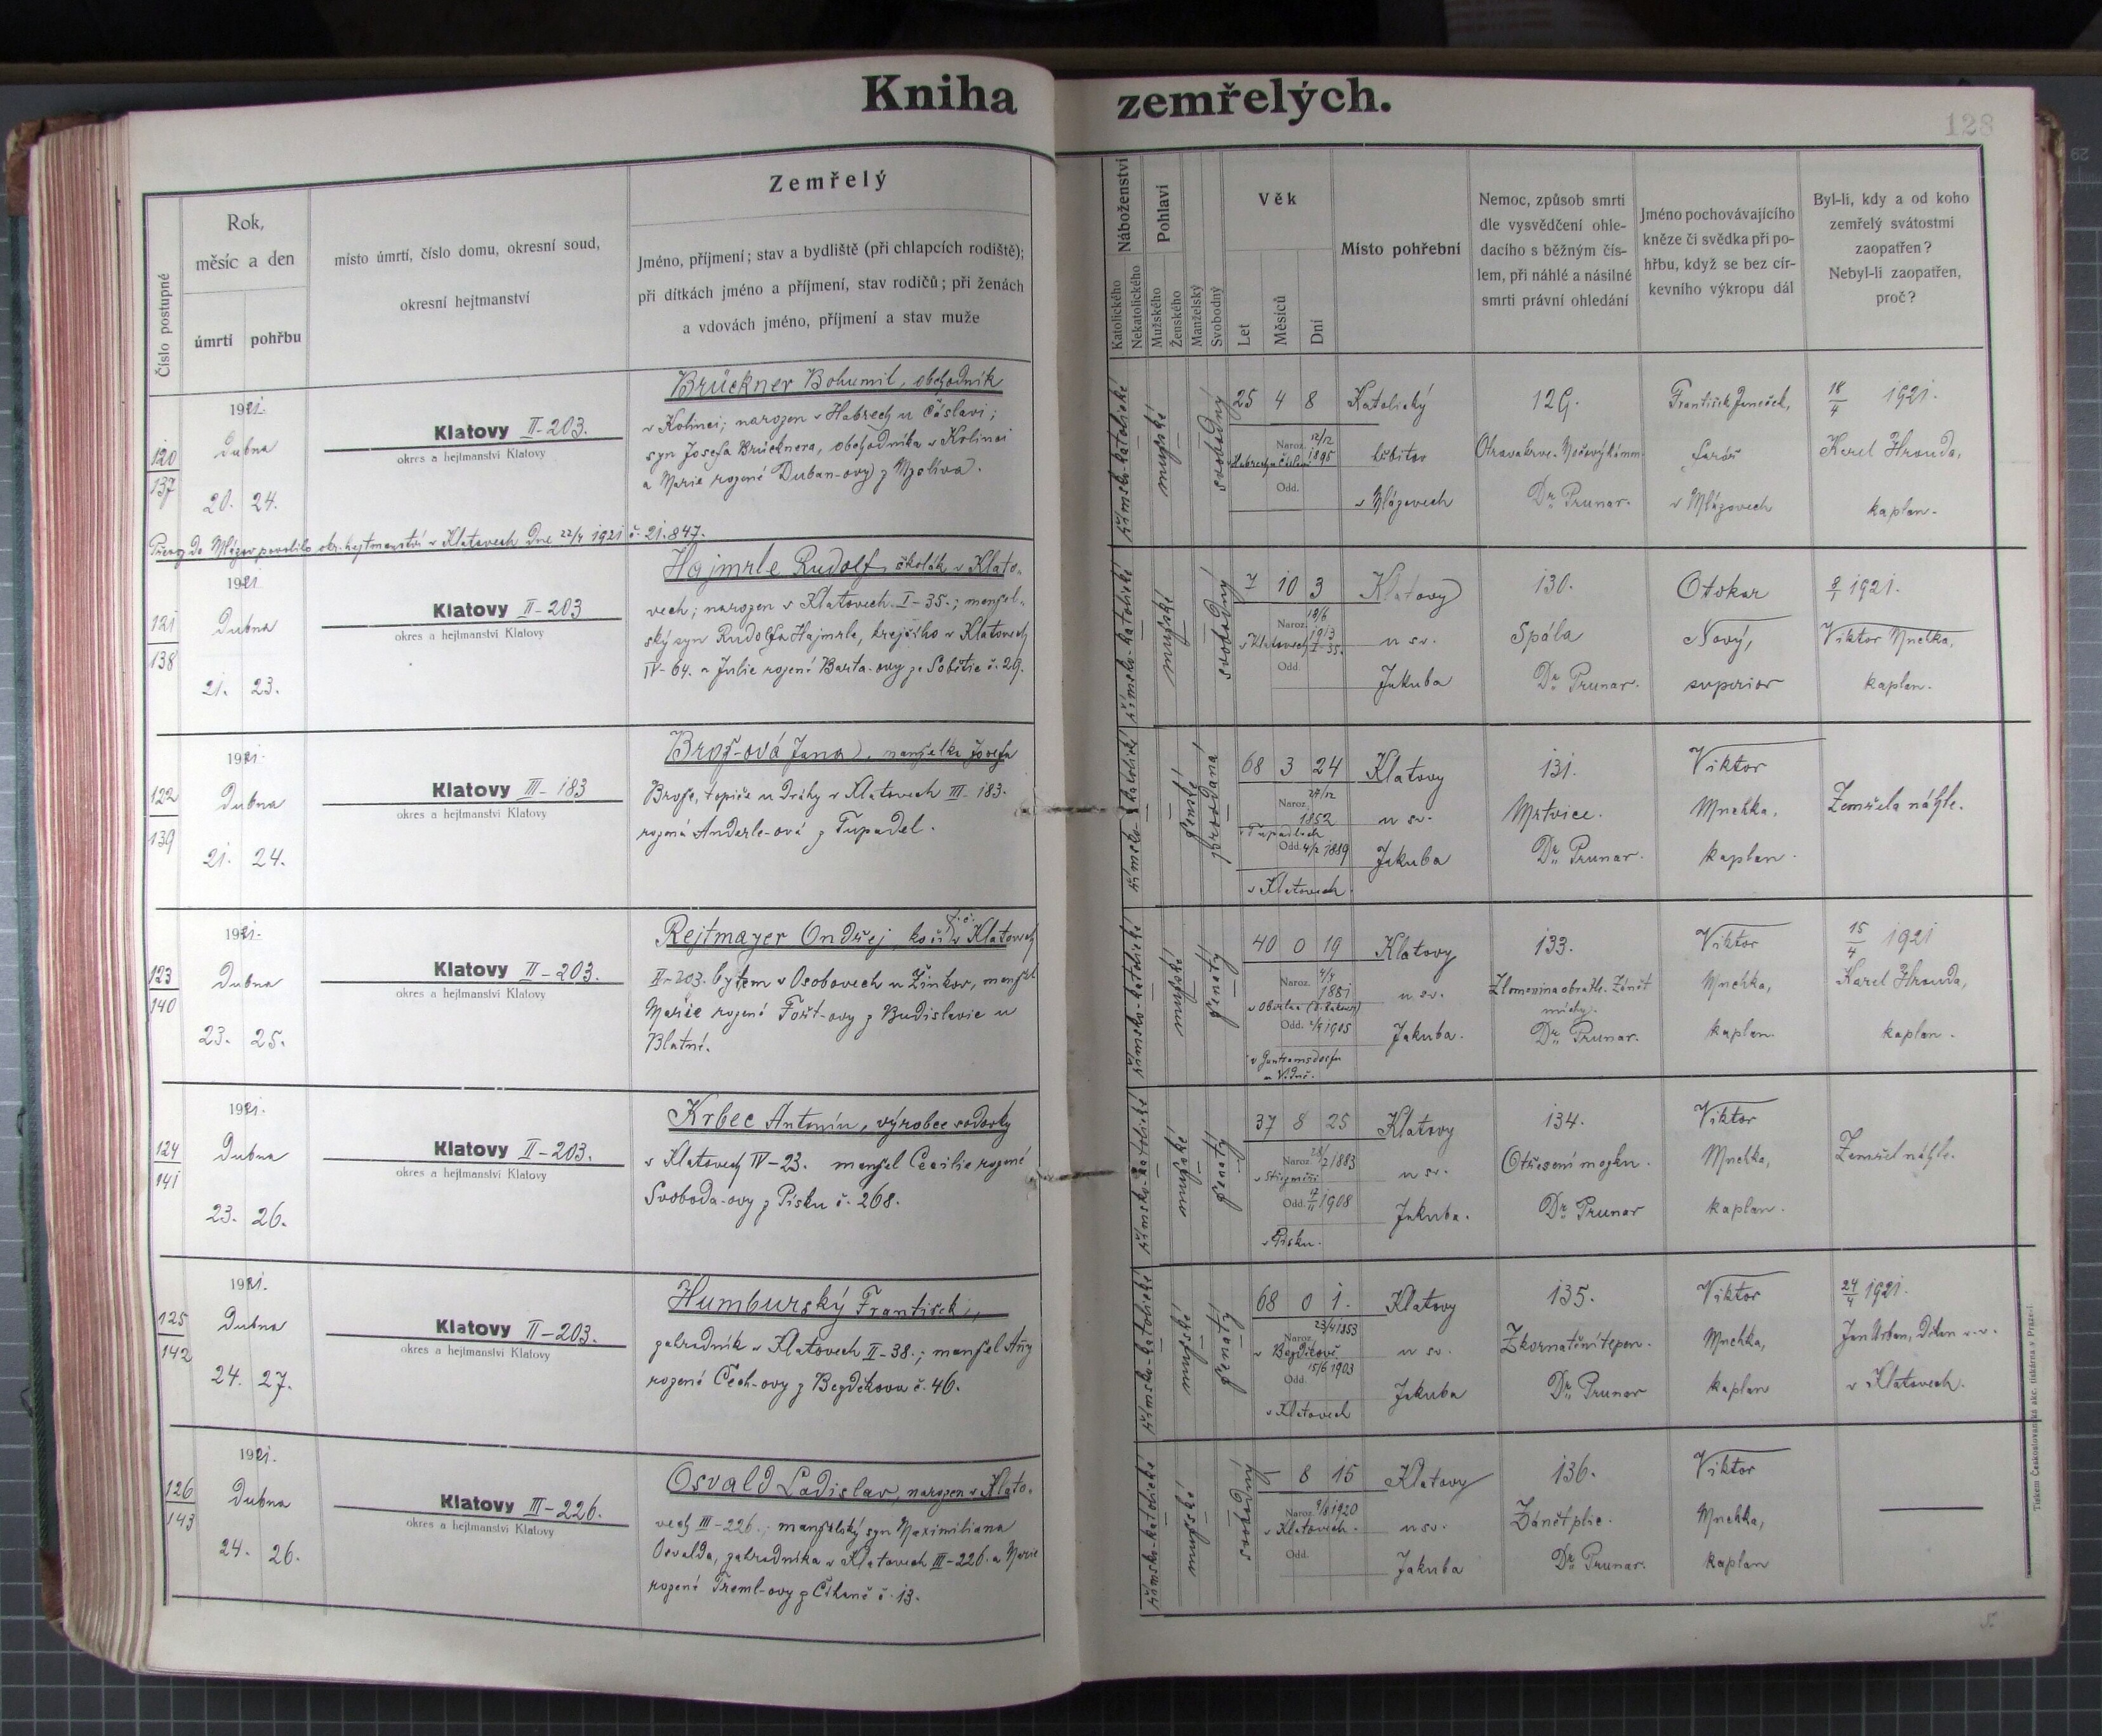 Kniha zemřelých.
128
Číslo postupné
Rok,
měsíc a den
úmrtí pohřbu
místo úmrtí, číslo domu, okresní soud,
okresní hejtmanství
Zemřelý
Jméno, příjmení; stav a bydliště (při chlapcích rodiště);
při dítkách jméno a příjmení, stav rodičů; při ženách
a vdovách jméno, příjmení a stav muže
Náboženství
Katolického
Nekatolického
Pohlaví
Mužského
Ženského
Manželský
Svobodný
Věk
Let
Měsíců
Dní
Místo pohřební
Nemoc, způsob smrti
dle vysvědčení ohle-
dacího s běžným čís-
lem, při náhlé a násilné
smrti právní ohledání
Jméno pochovávajícího
kněze či svědka při po-
hřbu, když se bez cír-
kevního výkropu dál
Byl-li, kdy a od koho
zemřelý svátostmi
zaopatřen?
Nebyl-li zaopatřen,
proč?
120
137
1921.
Dubna
20. 24.
Klatovy II-203.
okres a hejtmanství Klatovy
Brückner Bohumil, obchodník
v Kolinci; narozen v Habrech u Čáslavi;
syn Josefa Brücknera, obchodníka v Kolinci
a Marie rozené Duban-ovy z Myslíva.
římsko-katolické
mužské
svobodný
25 4 8
Naroz. 12/12 1895
Odd.
Katolický
hřbitov
v Mlázovech
129.
Otrava krve.
Dr. Prunar.
František Janeček,
farář
v Mlázovech
18/4 1921.
Karel Hrouda,
kaplan.
Převoz do Mlázov povolilo okr. hejtmanství v Klatovech dne 22/4 1921 č. 21.847.
121
138
1921
Dubna
21. 23.
Klatovy II-203
okres a hejtmanství Klatovy
Hajmrle Rudolf, školák v Klato-
vech; narozen v Klatovech I-35.; manžel-
ský syn Rudolfa Hajmrle, krejčího v Klatovech
IV-64. a Julie rozené Barta-ovy ze Sobětic č. 29.
římsko-katolické
mužské
svobodný
7 10 3
Naroz. 18/6 1913
v Klatovech I-35.
Odd.
Klatovy
u sv.
Jakuba
130.
Spála
Dr. Prunar.
Otokar
Nový,
superior
8/1 1921.
Viktor Mnehka,
kaplan.
122
139
1921.
Dubna
21. 24.
Klatovy III-183
okres a hejtmanství Klatovy
Brož-ová Jana, manželka Josefa
Brože, topiče u dráhy v Klatovech III-183.
rozená Anderle-ová z Tupadel.
římsko-katolické
ženské
provdaná
68 3 24
Naroz. 27/12 1852
v Tupadlech
Odd. 4/2 1889
v Klatovech
Klatovy
u sv.
Jakuba
131.
Mrtvice.
Dr. Prunar.
Viktor
Mnehka,
kaplan.
Zemřela náhle.
123
140
1921.
Dubna
23. 25.
Klatovy II-203.
okres a hejtmanství Klatovy
Rejtmayer Ondřej, kočí t. č. v Klatovech
II-203. bytem v Osobovech u Žinkov, manžel
Marie rozené Fořt-ovy z Budislavic u
Blatné.
římsko-katolické
mužské
ženatý
40 0 19
Naroz. 4/4 1881
Odd. 1905
v Guntramsdorfu
u Vídně.
Klatovy
u sv.
Jakuba.
133.
Zlomenina obratle. Zánět
míchy.
Dr. Prunar.
Viktor
Mnehka,
kaplan.
15/4 1921
Karel Hrouda,
kaplan.
124
141
1921.
Dubna
23. 26.
Klatovy II-203.
okres a hejtmanství Klatovy
Krbec Antonín, výrobce sodovky
v Klatovech IV-23. manžel Cecilie rozené
Svoboda-ovy z Písku č. 268.
římsko-katolické
mužské
ženatý
37 8 25
Naroz. 28/7 1883
Odd. 17/11 1908
v Písku.
Klatovy
u sv.
Jakuba.
134.
Otřesení mozku.
Dr. Prunar
Viktor
Mnehka,
kaplan.
Zemřel náhle.
125
142
1921.
Dubna
24. 27.
Klatovy II-203.
okres a hejtmanství Klatovy
Humburský František,
zahradník v Klatovech II-38.; manžel Anny
rozené Čech-ovy z Bezděkova č. 46.
římsko-katolické
mužské
ženatý
68 0 1.
Naroz. 23/4 1853
v Bezděkově
Odd. 15/6 1903
v Klatovech
Klatovy
u sv.
Jakuba
135.
Zkornatění tepen.
Dr. Prunar
Viktor
Mnehka,
kaplan
24/4 1921.
Jan Urban, děkan v. v.
v Klatovech.
126
143
1921.
Dubna
24. 26.
Klatovy III-226.
okres a hejtmanství Klatovy
Osvald Ladislav, narozen v Klato-
vech III-226.; manželský syn Maximiliana
Osvalda, zahradníka v Klatovech III-226. a Marie
rozené Treml-ovy z Čihaně č. 13.
římsko-katolické
mužské
svobodný
– 8 15
Naroz. 9/8 1920
v Klatovech.
Odd.
Klatovy
u sv.
Jakuba
136.
Zánět plic.
Dr. Prunar.
Viktor
Mnehka,
kaplan
Tiskem Československá akc. tiskárna v Praze-I.